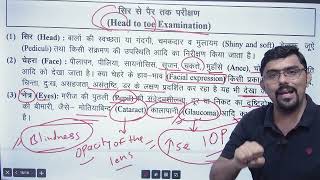 सिर से पैर तक परीक्षण
(Head to toe Examination)
(1) सिर (Head) : बालों की स्वच्छता या गंदगी, चमकदार व मुलायम (Shiny and soft)
(Pediculi) तथा किसी संक्रमण की उपस्थिति आदि का निरीक्षण किया जाता है।
(2) चेहरा (Face): पीलापन, पीलिया, सायनोसिस, सूजन, चकत्ते, मुहाँसे (Acne),
आदि को देखा जाता है। क्या चेहरे के हाव-भाव (Facial expression) किसी
दुःख, असहजता, डर के लक्षण प्रदर्शित कर रहा है यह भी देखा
(3) नेत्र (Eyes): मरीज की पुतली (Pupil) की संवेदनशीलता, दूर या निकट का
की बीमारी, जैसे - मोतियाबिन्द (Cataract) कालापानी (Glaucoma) आदि
Blindness
opacity of the lens
↑se IOP